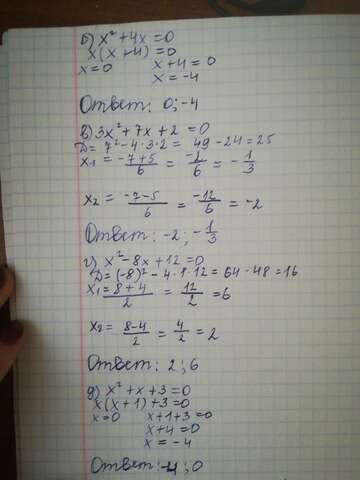 б) x² + 4x = 0
x(x+4) = 0
x = 0 x + 4 = 0
x = -4
Ответ: 0; -4
в) 3x² + 7x + 2 = 0
D = 7² - 4·3·2 = 49 - 24 = 25
x₁ = (-7+5)/6 = -2/6 = -1/3
x₂ = (-7-5)/6 = -12/6 = -2
Ответ: -2; -1/3
г) x² - 8x + 12 = 0
D = (-8)² - 4·1·12 = 64 - 48 = 16
x₁ = (8+4)/2 = 12/2 = 6
x₂ = (8-4)/2 = 4/2 = 2
Ответ: 2; 6
д) x² + x + 3 = 0
x(x+1) + 3 = 0
x = 0 x + 1 + 3 = 0
x + 4 = 0
x = -4
Ответ: -4; 0